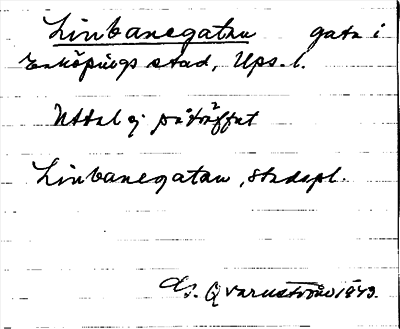 Linbanegatan gata i
Enköpings stad, Ups. l.
Uttal ej påträffat
Linbanegatan, stadspl.
Qvarnström 1943.